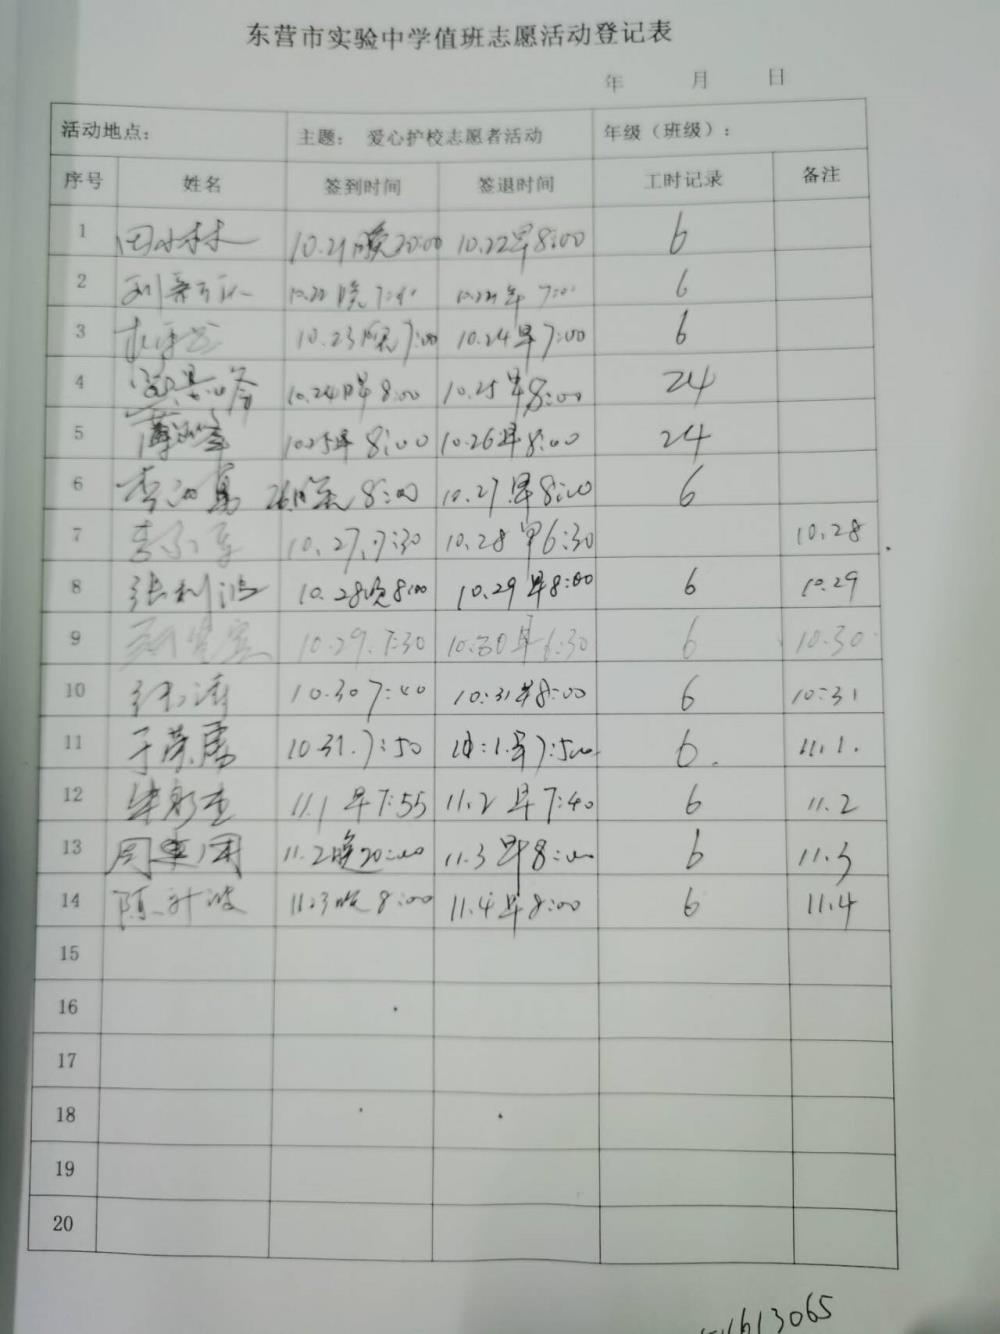 东营市实验中学值班志愿活动登记表
年 月 日
活动地点： 主题： 爱心护校志愿者活动 年级（班级）：
序号 姓名 签到时间 签退时间 工时记录 备注
1 田小林 10.21晚20:00 10.22早8:00 6
2 10.22晚 7: 6
3 10.23晚7:00 10.24早7:00 6
4 10.24早8:00 10.25早8:00 24
5 10.25早 8:00 10.26早8:00 24
6 李 26晚 8:00 10.27早8:00 6
7 李 10.27.7:30 10.28早6:30 10.28
8 张利波 10.28晚8:00 10.29早8:00 6 10.29
9 10.29.7:30 10.30早6:30 6 10.30
10 10.30 7:40 10:31早8:00 6 10:31
11 于荣 10.31.7:50 早7:50 6. 11.1.
12 11.1早7:55 11.2早7:40 6 11.2
13 周 11.2晚20:00 11.3早8:00 6 11.3
14 陈 晚8:00 11.4早8:00 6 11.4
15
16
17
18
19
20
613065